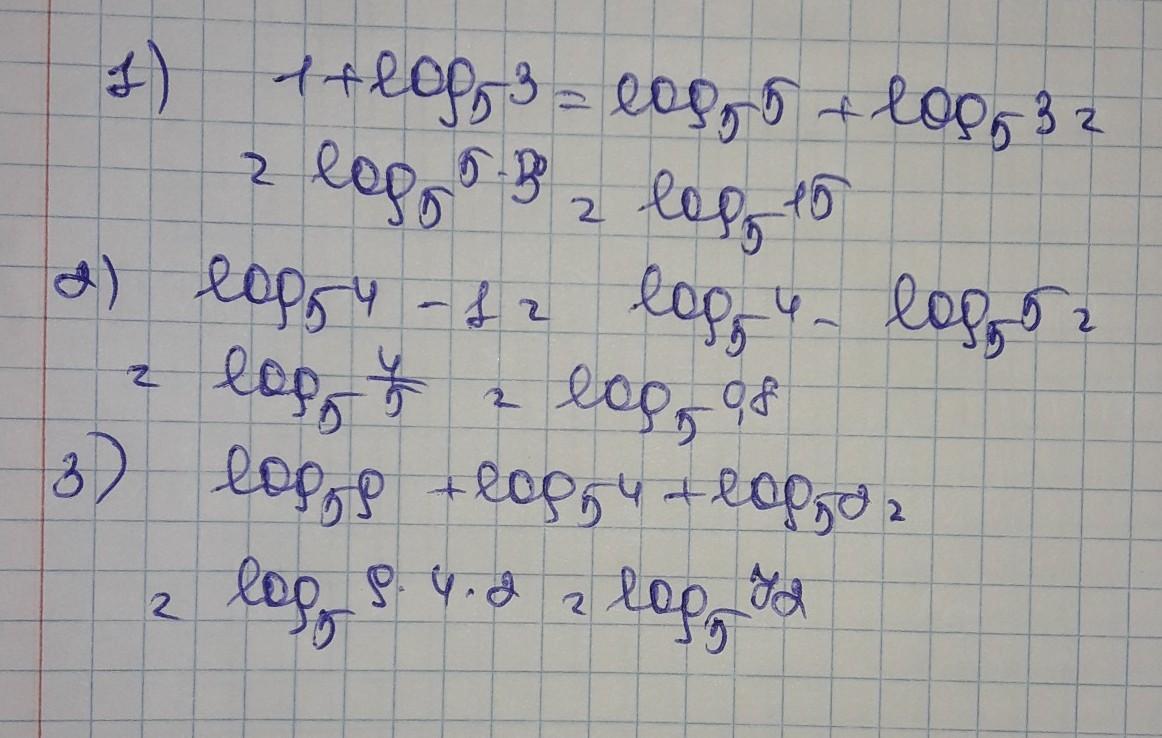 1) 1 + log₅3 = log₅5 + log₅3 =
= log₅5·3 = log₅15
2) log₅4 - 1 = log₅4 - log₅5 =
= log₅ 4/5 = log₅0,8
3) log₅9 + log₅4 + log₅2 =
= log₅9·4·2 = log₅72